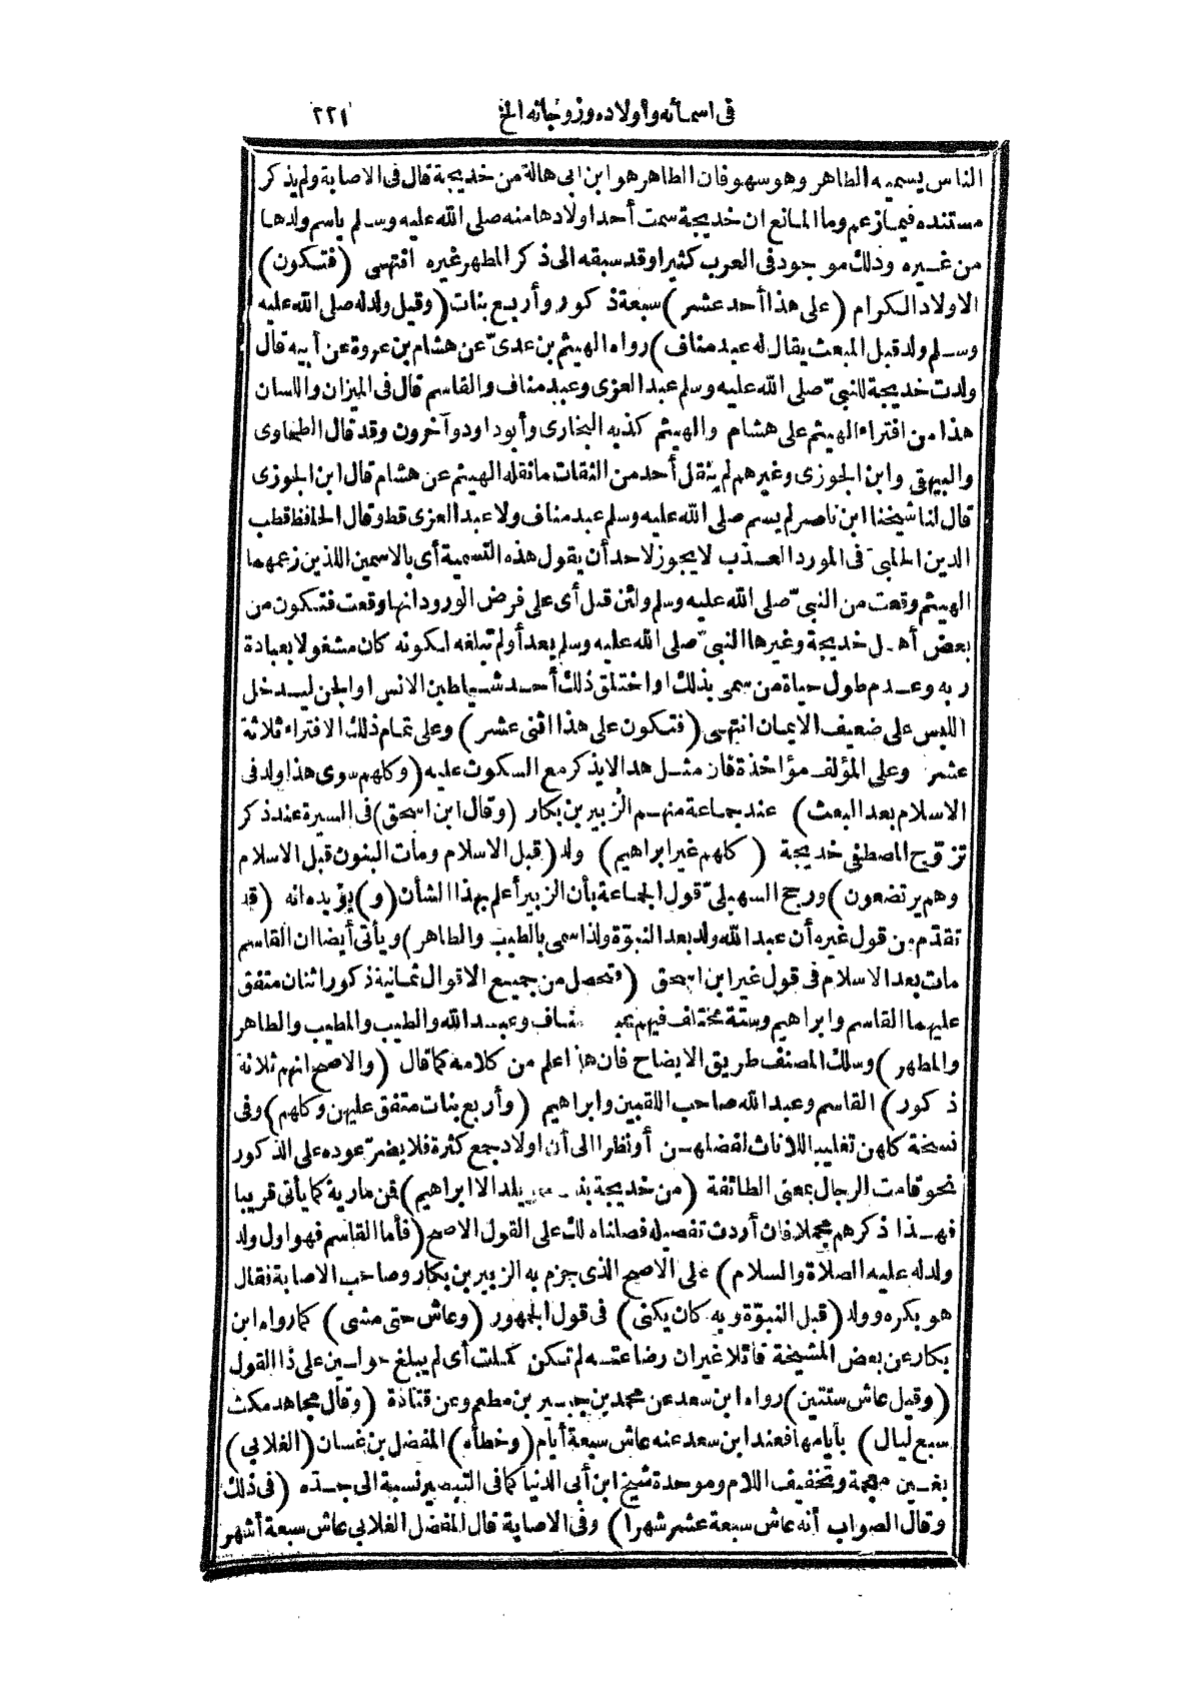 فى اسمائه وأولاده وزوجاته الخ ٢٢١
الناس يسميه الطاهر وهو سهو فان الطاهر هو ابن ابى هالة من خديجة قال فى الاصابة ولم يذكر
مستنده فيما زعم وما المانع ان خديجة سمت أحد اولادها منه صلى الله عليه وسلم باسم ولدها
من غيره وذلك موجود فى العرب كثيرا وقد سبقه الى ذكر المطهر غيره انتهى (فتكون)
الاولاد الكرام (على هذا أحد عشر) سبعة ذكور وأربع بنات (وقيل ولد له صلى الله عليه
وسلم ولد قبل المبعث يقال له عبد مناف) رواه الهيثم بن عدىّ عن هشام بن عروة عن أبيه قال
ولدت خديجة للنبىّ صلى الله عليه وسلم عبد العزى وعبد مناف والقاسم قال فى الميزان واللسان
هذا من افتراء الهيثم على هشام والهيثم كذبه البخارى وأبو داود وآخرون وقد قال الطحاوى
والبيهقى وابن الجوزى وغيرهم لم ينقل أحد من الثقات ما نقله الهيثم عن هشام قال ابن الجوزى
قال لنا شيخنا ابن ناصر لم يسم صلى الله عليه وسلم عبد مناف ولا عبد العزى قط وقال الحافظ قطب
الدين الحلبىّ فى المورد العذب لا يجوز لاحد أن يقول هذه التسمية أى بالاسمين اللذين زعمهما
الهيثم وقعت من النبىّ صلى الله عليه وسلم ولئن قيل أى على فرض الورود انها وقعت فتكون من
بعض أهل خديجة وغيرها النبىّ صلى الله عليه وسلم بعد أو لم تبلغه لكونه كان مشغولا بعبادة
ربه وعدم طول حياة من سمى بذلك او اختلق ذلك أحد شياطين الانس او الجن ليدخل
اللبس على ضعيف الايمان انتهى (فتكون على هذا اثنى عشر) وعلى تمام ذلك الافتراء ثلاثة
عشر وعلى المؤلف مؤاخذة فان مثل هذا لا يذكر مع السكوت عليه (وكلهم سوى هذا ولد فى
الاسلام بعد البعث) عند جماعة منهم الزبير بن بكار (وقال ابن اسحق) فى السيرة عند ذكر
تزوّج المصطفى خديجة (كلهم غير ابراهيم) ولد (قبل الاسلام ومات البنون قبل الاسلام
وهم يرتضعون) ورجح السهيلىّ قول الجماعة بأن الزبير أعلم بهذا الشأن (و) يؤيده انه (قد
تقدّم من قول غيره أن عبد الله ولد بعد النبوّة ولذا سمى بالطيب والطاهر) ويأتى أيضا ان القاسم
مات بعد الاسلام فى قول غير ابن اسحق (وتحصل من جميع الاقوال ثمانية ذكور اثنان متفق
عليهما القاسم وابراهيم وستة مختلف فيهم عبد مناف وعبد الله والطيب والمطيب والطاهر
والمطهر) وسلك المصنف طريق الايضاح فان هذا علم من كلامه كما قال (والاصح انهم ثلاثة
ذكور) القاسم وعبد الله صاحب اللقبين وابراهيم (وأربع بنات متفق عليهن وكلهم) وفى
نسخة كلهن تغليبا للاناث لفضلهن أو نظرا الى أن اولاد جمع كثرة فلا يضرّ عوده على الذكور
نحو قامت الرجال بمعنى الطائفة (من خديجة بنت خويلد الا ابراهيم) فمن مارية كما يأتى قريبا
فهذا ذكرهم مجملا فان أردت تفصيله فصلناه لك على القول الاصح (فأما القاسم فهو اول ولد
ولد له عليه الصلاة والسلام) على الاصح الذى جزم به الزبير بن بكار وصاحب الاصابة فقال
هو بكره وولد (قبل النبوّة وبه كان يكنى) فى قول الجمهور (وعاش حتى مشى) كما رواه ابن
بكار عن بعض المشيخة قائلا غير ان رضاعته لم تكن كملت أى لم يبلغ حولين على ذا القول
(وقيل عاش سنتين) رواه ابن سعد عن محمد بن جبير بن مطعم وعن قتادة (وقال مجاهد مكث
سبع ليال) بأيامها فعند ابن سعد عنه عاش سبعة أيام (وخطأه) المفضل بن غسان (الغلابى)
بغين معجمة وتخفيف اللام وموحدة شيخ ابن أبى الدنيا كما فى التبصير نسبة الى جدّه (فى ذلك
وقال الصواب أنه عاش سبعة عشر شهرا) وفى الاصابة قال المفضل الغلابى عاش سبعة أشهر